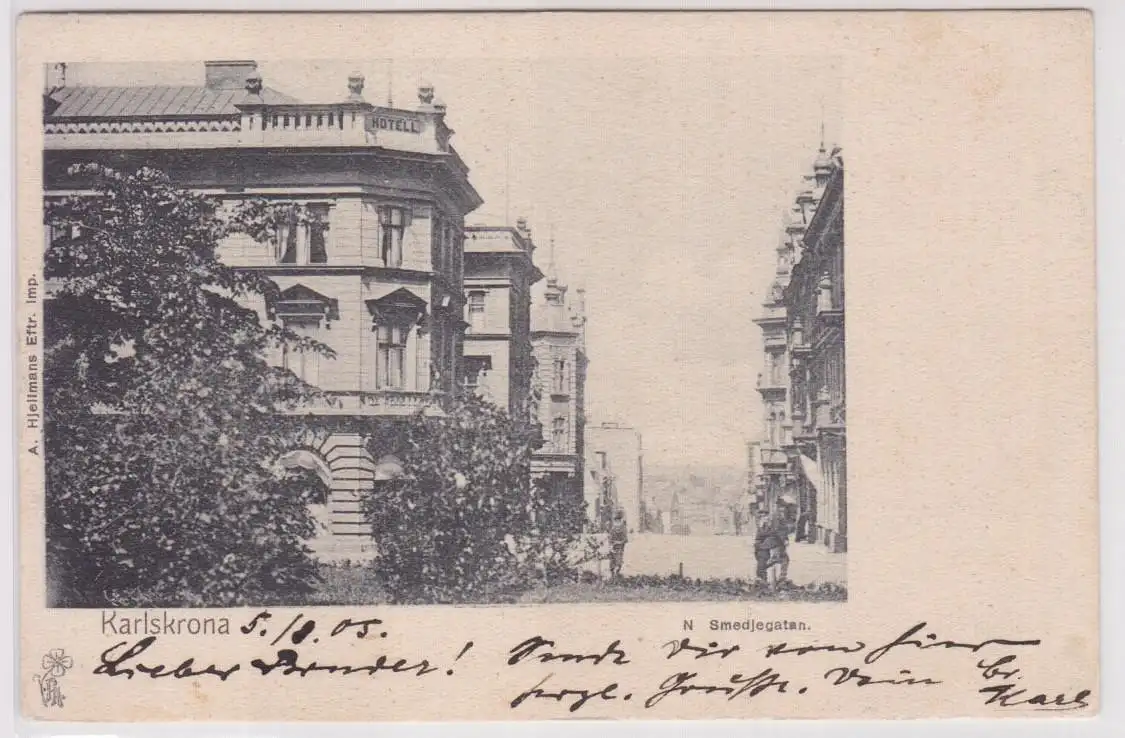 HOTELL
A. Hjellmans Eftr. Imp.
Karlskrona 5./8.05.
N Smedjegatan.
Lieber Bruder! Sende Dir von hier
herzl. Grüße. Dein Br.
Karl